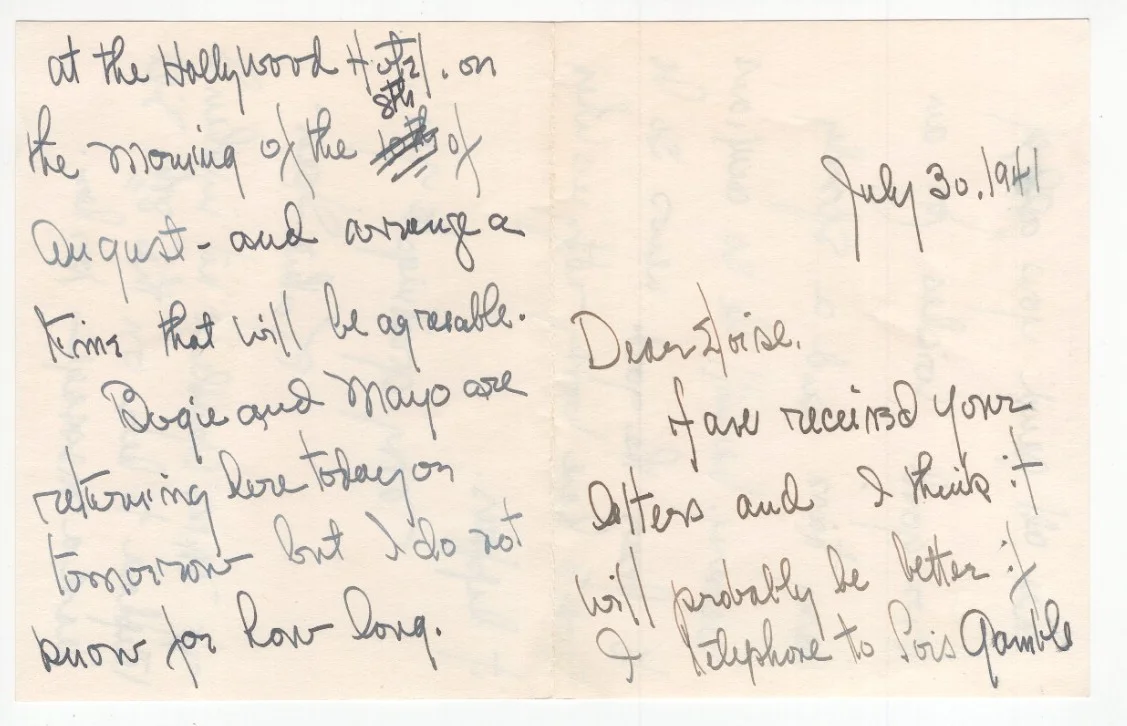 July 30. 1941
Dear Eloise.
Have received your
letters and I think it
will probably be better if
I telephone to Lois Gamble
at the Hollywood Hotel. on
the morning of the 8th of
August - and arrange a
time that will be agreeable.
Bogie and Mayo are
returning here today or
tomorrow but I do not
know for how long.